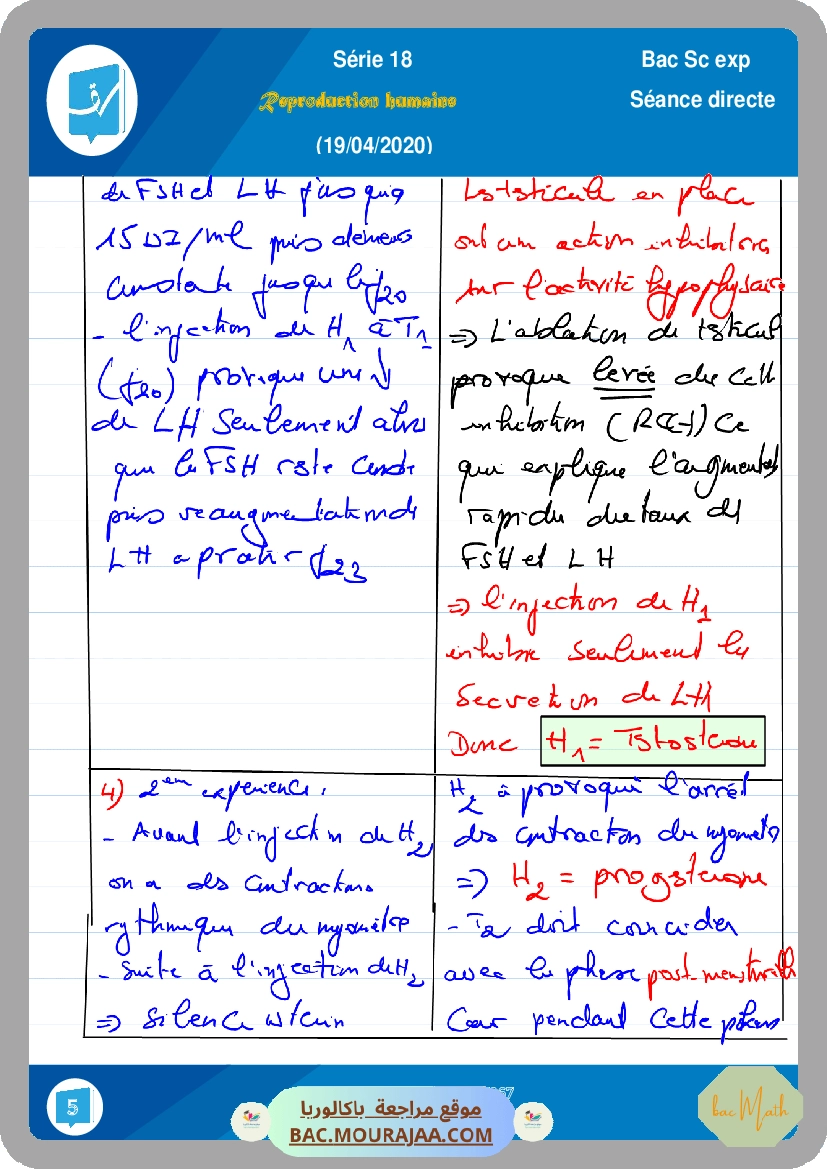 Série 18
Bac Sc exp
Reproduction humaine
Séance directe
(19/04/2020)
de FSH et LH jusqu'a
15 UI/ml puis demeure
constante jusque le j20
- l'injection de H1 à T1
(j20) provoque une ↓
de LH Seulement alors
que la FSH reste
puis reaugmentation de
LH a j23
Les testicule en place
ont une action inhibitrice
sur l'activité hypophysaire
=> L'ablation de testicul
provoque levée de cette
inhibition (RC(-)) Ce
qui explique l'augmentat
rapide du taux de
FSH et LH
=> l'injection de H1
inhibe seulement la
Secretion de LH
Donc H1 = Testosterone
4) 2em experience :
- Avant l'injection de H2
on a des Contractions
rythmique du myomètre
- Suite à l'injection de H2
=> Silence uterin
H2 à provoqué l'arrêt
des contraction du myomètr
=> H2 = progesterone
- T2 doit coincider
avec la phase post-menstruelle
Car pendant Cette phase
5
67
موقع مراجعة باكالوريا
BAC.MOURAJAA.COM
bac Math